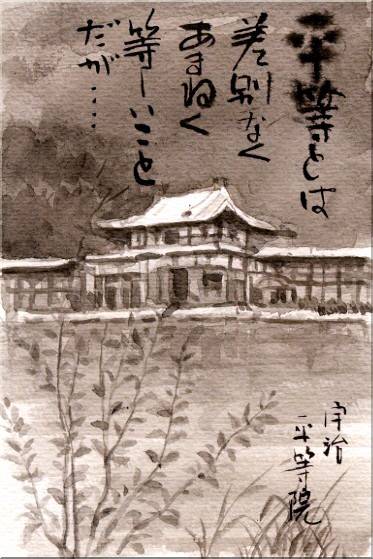 平等とは
差別なく
あまねく
等しいこと
だが・・・・
宇治
平等院